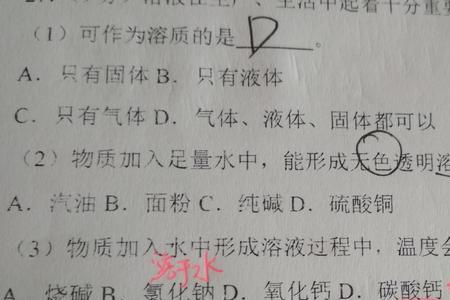 溶液在生产、生活中起着十分重要
（1）可作为溶质的是 D 。
A．只有固体 B．只有液体
C．只有气体 D．气体、液体、固体都可以
（2）物质加入足量水中，能形成无色透明溶
A．汽油 B．面粉 C．纯碱 D．硫酸铜
（3）物质加入水中形成溶液过程中，温度会
溶于水
烧碱 B．氯化钠 D．氧化钙 D．碳酸钙